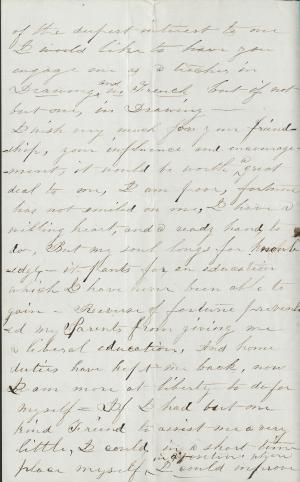 of the deepest interest to me
I would like to have you
engage me as a teacher in
Drawing, and French but if not
but one, in Drawing —
I wish very much for your friend-
-ship, your influence and encourage-
-ment, it would be worth a great
deal to me, I am poor, fortune
has not smiled on me, I have a
willing heart, and a ready hand to
do, But my soul longs for knowl-
-edge — it pants for an education
which I have never been able to
gain — Reverse of fortune prevent-
-ed my Parents from giving me
a liberal education, And home
duties have kept me back, now
I am more at liberty to
myself — If I had but one
kind Friend to assist me a very
little, I could in a short time
place myself in position where
I could improve